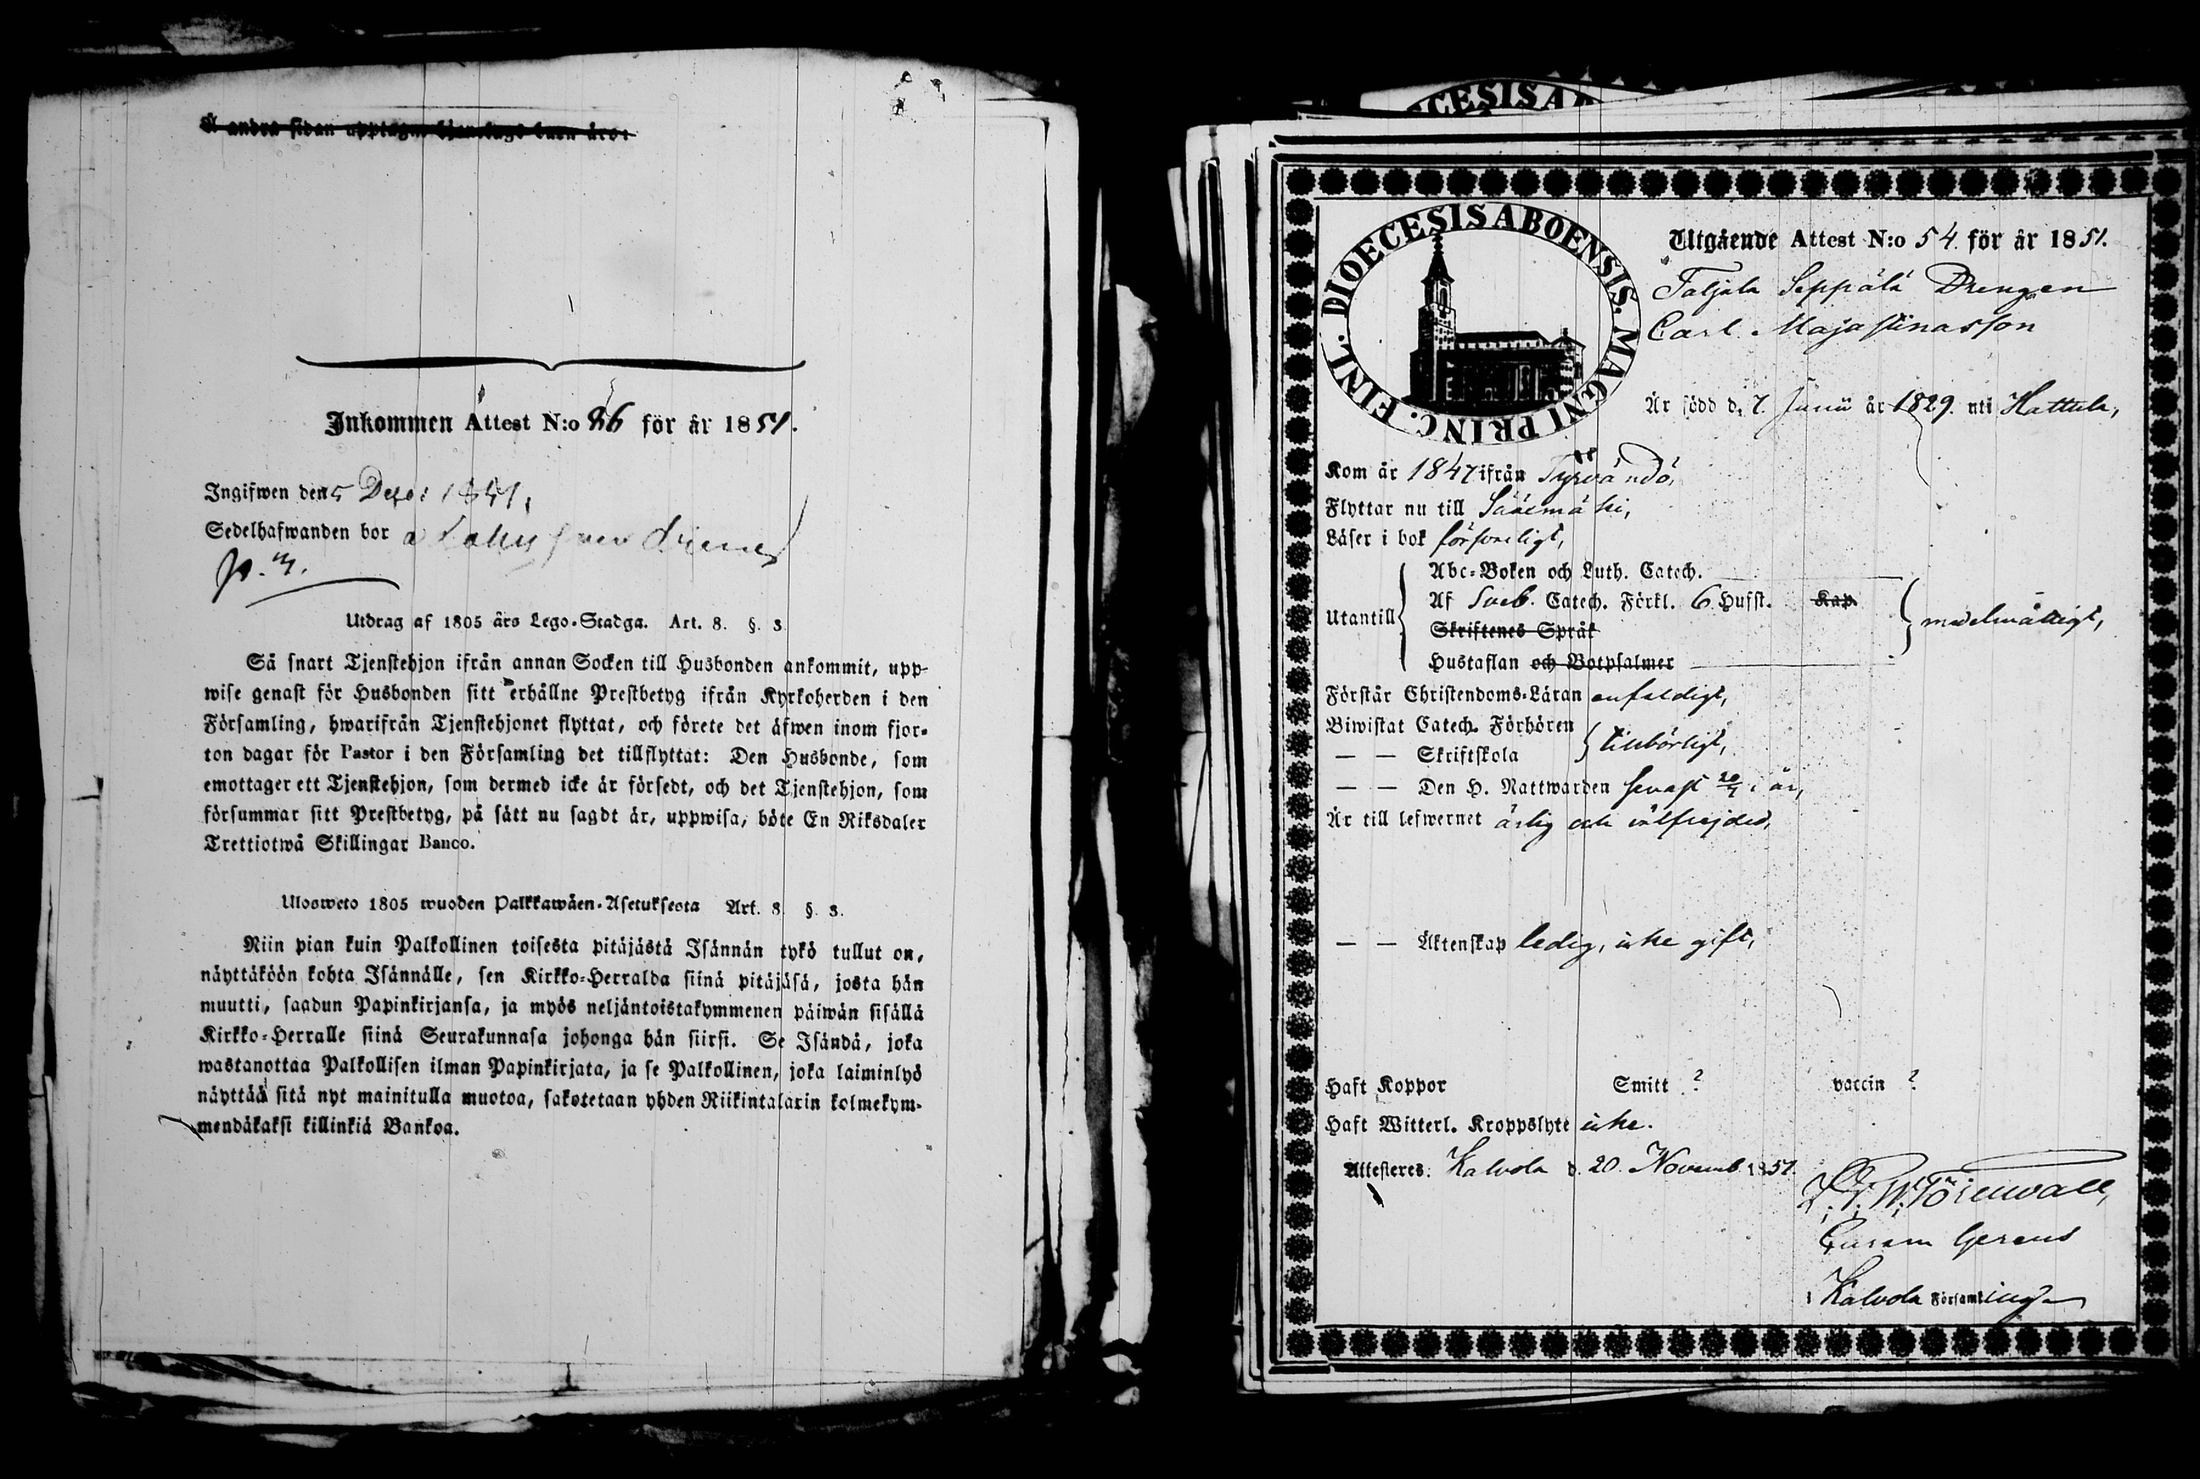 Å andra sidan upptagne tjenstags barn äro:
Inkommen Attest N:o 26 för år 1851.
Ingifwen den 5 Dece: 1851.
Sedelhafwanden bor
Utdrag af 1805 års Lego-Stadga. Art. 8. §. 3
Så snart Tjenstehjon ifrån annan Socken till Husbonden ankommit, upp-
wise genast för Husbonden sitt erhållne Prestbetyg ifrån Kyrkoherden i den
Församling, hwarifrån Tjenstehjonet flyttat, och förete det äfwen inom fjor-
ton dagar för Pastor i den Församling det tillflyttat: Den Husbonde, som
emottager ett Tjenstehjon, som dermed icke är försedt, och det Tjenstehjon, som
försummar sitt Prestbetyg, på sätt nu sagdt är, uppwisa, böte En Riksdaler
Trettiotwå Skillingar Banco.
Ulosweto 1805 wuoden Palkkawäen-Asetuksesta Art. 8. §. 3.
Niin pian kuin Palkollinen toisesta pitäjästä Isännän tykö tullut on,
näyttäköön kohta Isännälle, sen Kirkko-Herralda siinä pitäjäsä, josta hän
muutti, saadun Papinkirjansa, ja myös neljäntoistakymmenen päiwän sisällä
Kirkko-Herralle siinä Seurakunnasa johonga hän siirsi. Se Isändä, joka
wastanottaa Palkollisen ilman Papinkirjata, ja se Palkollinen, joka laiminlyö
näyttää sitä nyt mainitulla muotoa, sakotetaan yhden Riikintalarin kolmekym-
mendäkaksi killinkiä Bankoa.
DIOECESIS ABO
DIOECESIS ABOENSIS. MAGNI PRINC. FINL.
Utgående Attest N:o 54 för år 1851.
Taljala Seppälä Drengen
Carl Majastinasson
Är född d. 7 Junii år 1829. uti Hattula,
Kom år 1847 ifrån Tyrväntö,
Flyttar nu till Sääxmäki,
Läser i bok försvarligt,
Utantill
Abc-Boken och Luth. Catech.
Af Sveb. Catech. Förkl. 6 Hufst. Kap.
Skriftenes Språk
Hustaflan och Botpsalmer
medelmåttigt,
Förstår Christendoms-Läran enfaldigt,
Biwistat Catech. Förhören
— — Skriftskola
tillbörligt,
— — Den H. Nattwarden senast 20/7 i år,
Är till lefwernet ärlig och välfrejdad,
— — Äktenskap ledig, icke gift,
Haft Koppor Smitt ? vaccin ?
Haft Witterl. Kroppslyte icke.
Attesteres: Kalvola d. 20 Novemb. 1851.
Curam Gerens
i Kalvola Församling